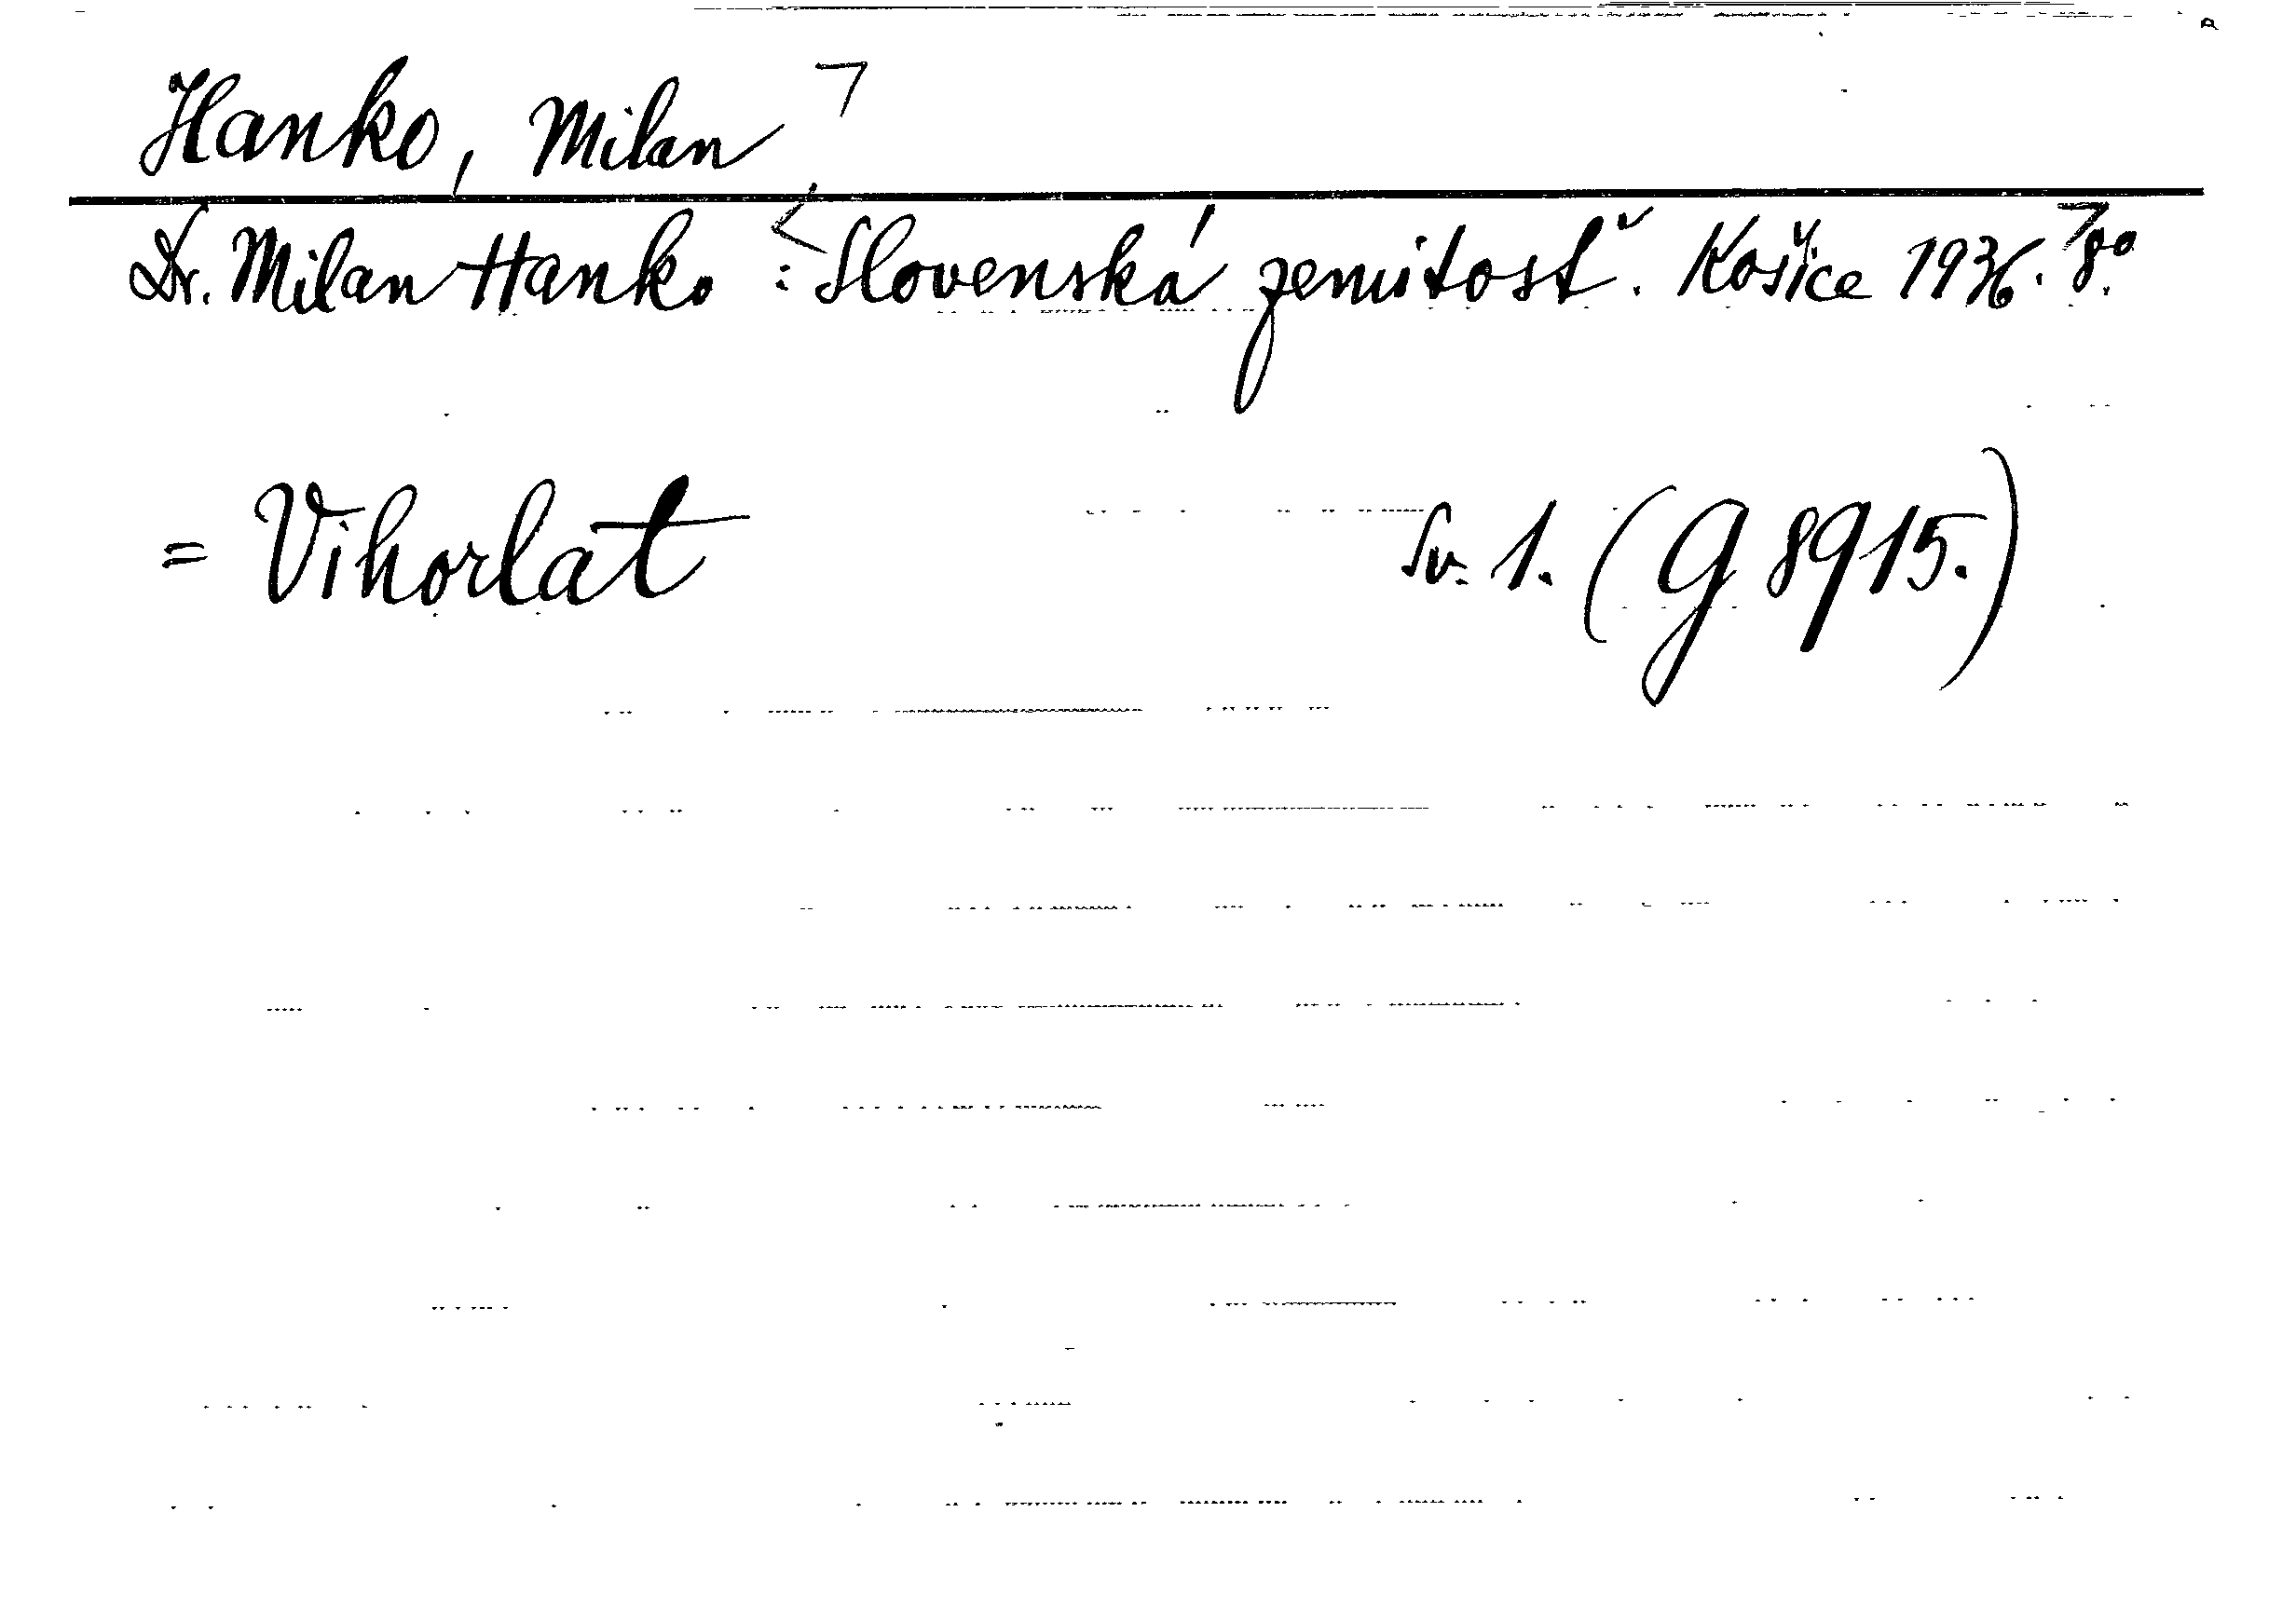 Hanko, Milan
Dr. Milan Hanko: Slovenská zemitosť. Košice 1936. 8°.
= Vihorlat Sv. 1. (G 8915.)